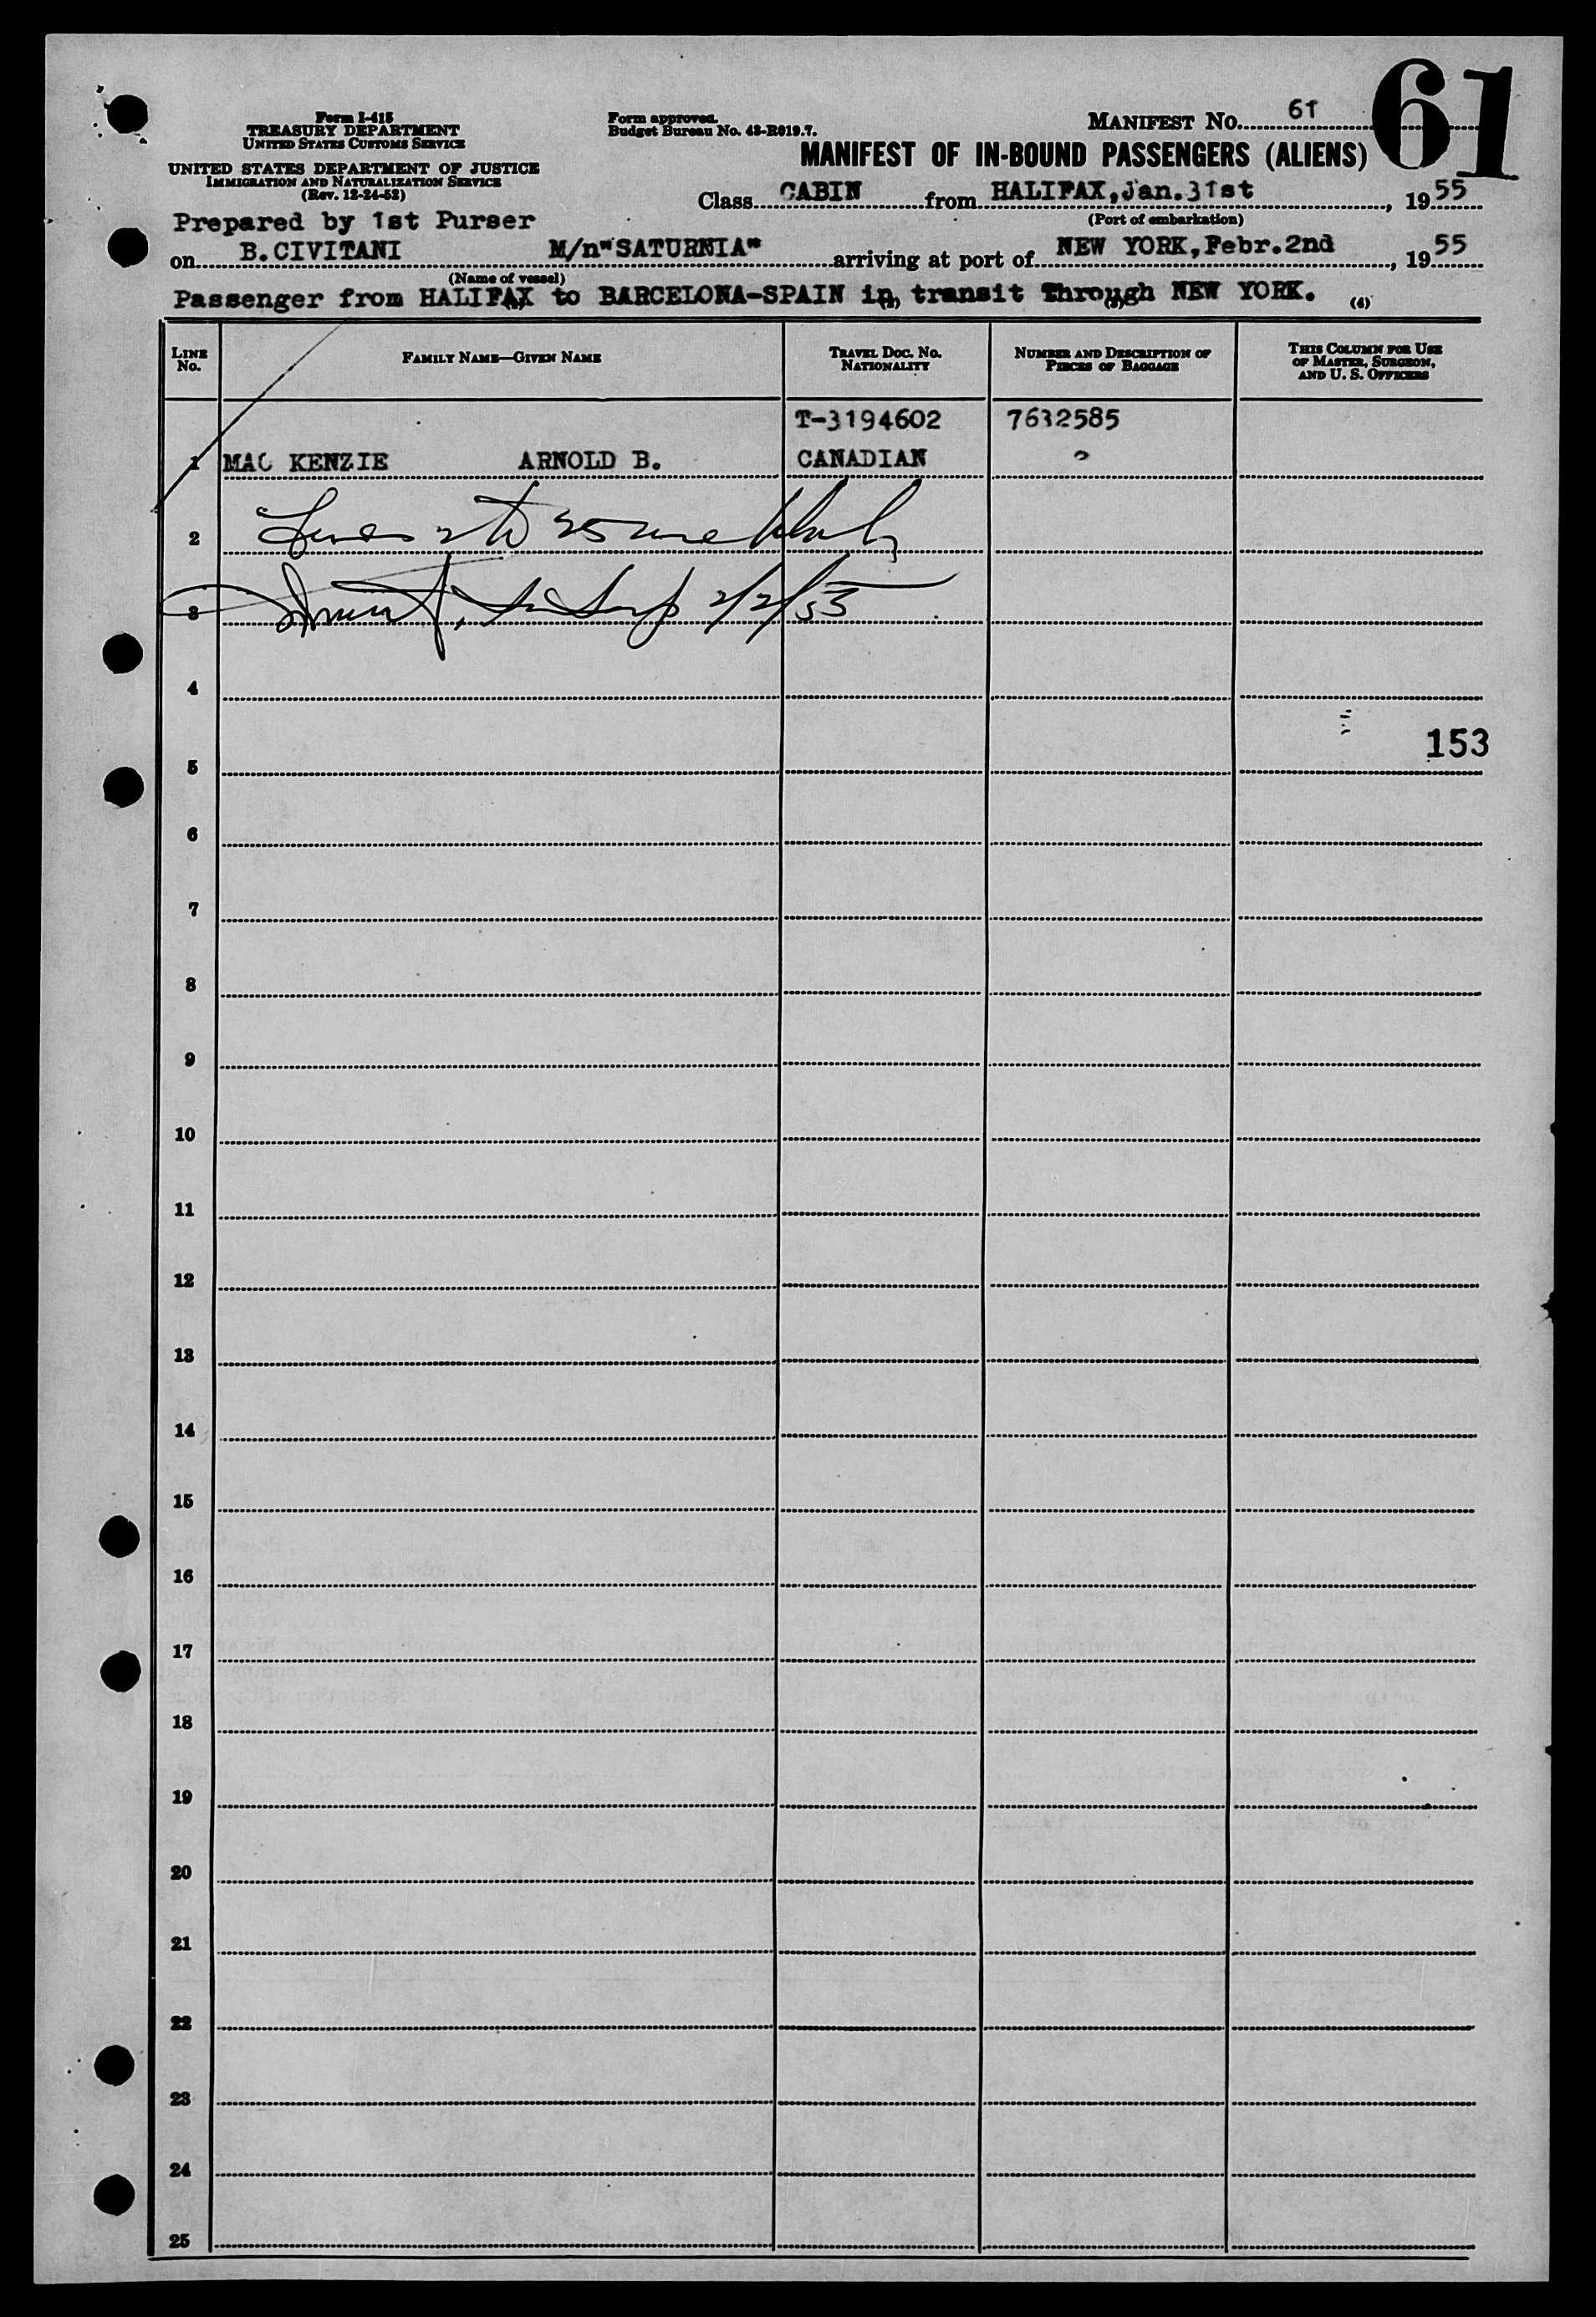 61
Form I-415
TREASURY DEPARTMENT
UNITED STATES CUSTOMS SERVICE
UNITED STATES DEPARTMENT OF JUSTICE
IMMIGRATION AND NATURALIZATION SERVICE
(Rev. 12-24-52)
Form approved.
Budget Bureau No. 43-R019.7.
MANIFEST No. 61
MANIFEST OF IN-BOUND PASSENGERS (ALIENS)
Class CABIN from HALIFAX, Jan. 31st, 1955
(Port of embarkation)
Prepared by 1st Purser
on B. CIVITANI M/n "SATURNIA" arriving at port of NEW YORK, Febr. 2nd, 1955
(Name of vessel)
Passenger from HALIFAX to BARCELONA-SPAIN in transit Through NEW YORK.
(4)
LINE No. FAMILY NAME—GIVEN NAME TRAVEL DOC. No. NATIONALITY NUMBER AND DESCRIPTION OF PIECES OF BAGGAGE THIS COLUMN FOR USE OF MASTER, SURGEON, AND U. S. OFFICERS
T-3194602 7632585
1 MAC KENZIE ARNOLD B. CANADIAN
2
3 2/2/55
4
153
5
6
7
8
9
10
11
12
13
14
15
16
17
18
19
20
21
22
23
24
25